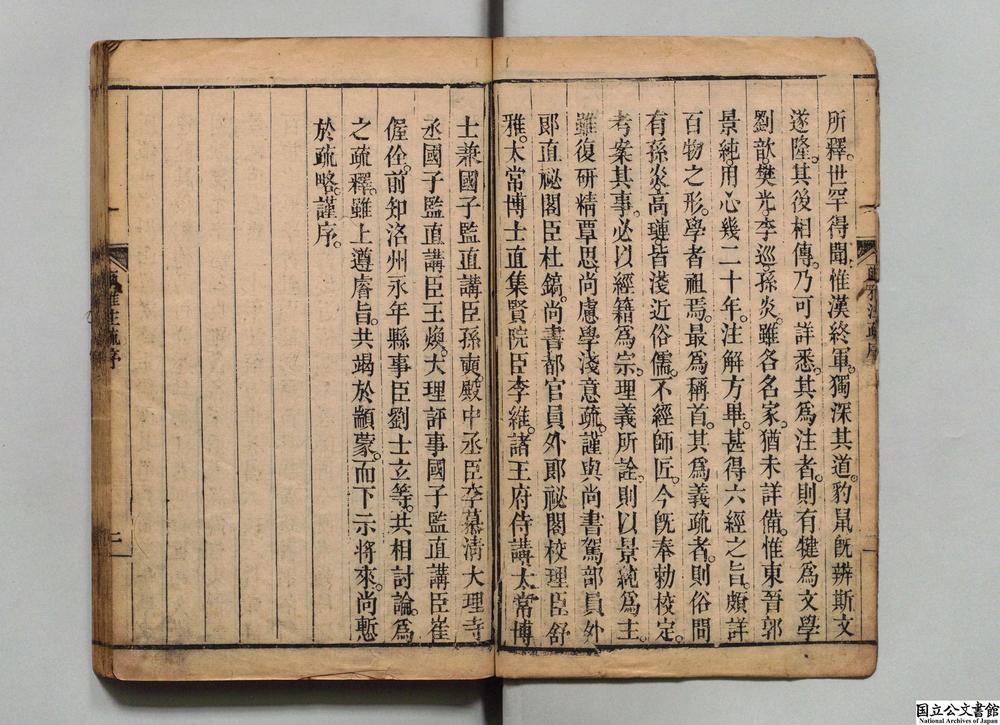 所釋。世罕得聞惟漢終軍獨深其道。豹鼠旣辨斯文
遂隆。其後相傳。乃可詳悉。其爲注者。則有犍爲文學
劉歆。樊光。李巡。孫炎。雖各名家。猶未詳備。惟東晉郭
景純。用心幾二十年。注解方畢。甚得六經之旨。頗詳
百物之形。學者祖焉。最爲稱首。其爲義疏者。則俗間
有孫炎高璉。皆淺近俗儒。不經師匠。今旣奉勅校定。
考案其事。必以經籍爲宗。理義所詮。則以景純爲主。
雖復硏精覃思。尚慮學淺意疏。謹與尚書駕部員外
郎直祕閣臣杜鎬。尚書都官員外郎祕閣校理臣舒
雅。太常博士直集賢院臣李維。諸王府侍講太常博
爾雅注疏序
士兼國子監直講臣孫奭。殿中丞臣李慕清。大理寺
丞國子監直講臣王煥。大理評事國子監直講臣崔
偓佺。前知洺州永年縣事臣劉士立等。共相討論。爲
之疏釋。雖上遵睿旨。共竭於顓蒙。而下示將來。尚慙
於疏略。謹序。
爾雅注疏序
二
国立公文書館
National Archives of Japan